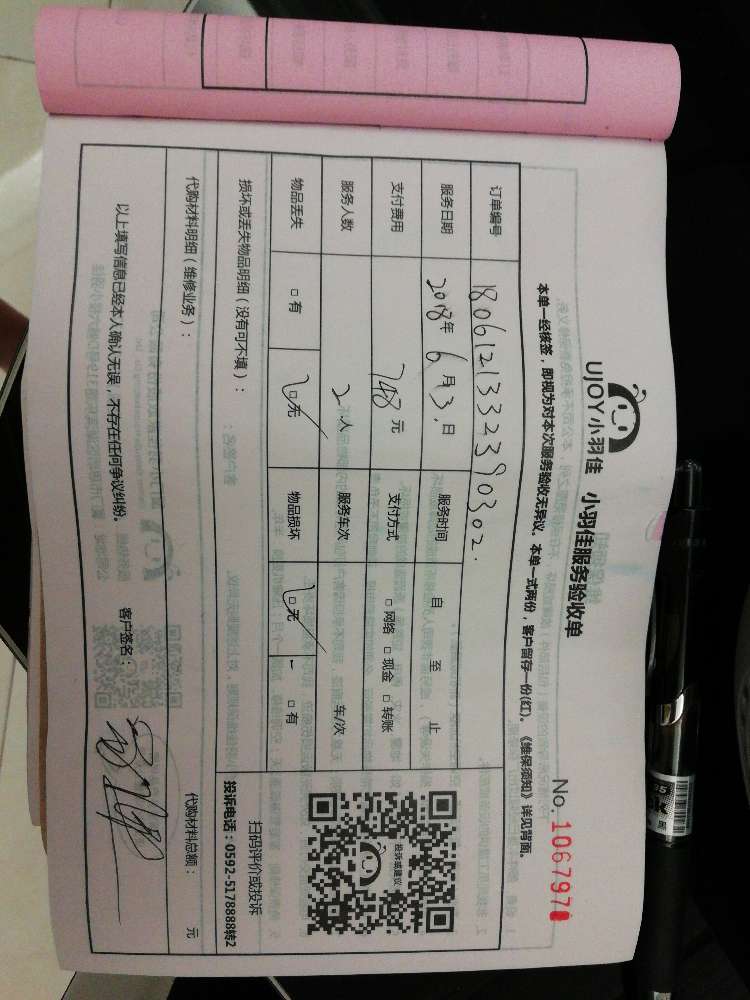 UJOY小羽佳 小羽佳服务验收单
No. 1067971
本单一经核签，即视为对本次服务验收无异议。本单一式两份，客户留存一份(红)。《维保须知》详见背面。
订单编号 18061213342390302.
服务日期 2018年6月13.日 服务时间 自 至 止
支付费用 748元 支付方式 □网络 □现金 □转账
服务人数 2人 服务车次 车/次
物品丢失 □有 □无 物品损坏 □无 □有
投诉或建议
扫码评价或投诉
投诉电话：0592-5178888转2
损坏或丢失物品明细（没有可不填）：
代购材料明细（维修业务）： 代购材料总额： 元
以上填写信息已经本人确认无误，不存在任何争议纠纷。 客户签名：